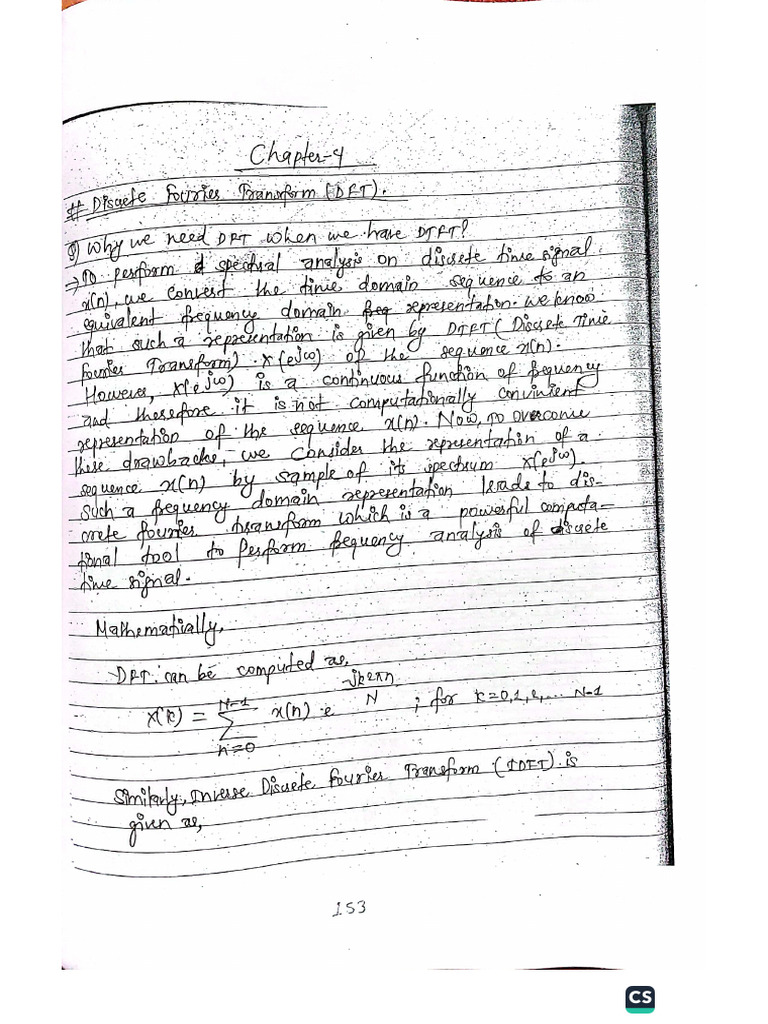 Chapter-4
# Discrete Fourier Transform (DFT).
Q) Why we need DFT when we have DTFT?
⇒ To perform spectral analysis on discrete time signal
x(n), we convert the time domain sequence to an
equivalent frequency domain freq representation. we know
that such a representation is given by DTFT (Discrete Time
Fourier Transform) X(e^jω) of the sequence x(n).
However, X(e^jω) is a continuous function of frequency
and therefore it is not computationally convinient
representation of the sequence x(n). Now, to overcome
these drawbacks, we consider the representation of a
sequence x(n) by sample of its spectrum X(e^jω).
Such a frequency domain representation leads to dis-
crete fourier transform which is a powerful computa-
tional tool to perform frequency analysis of discrete
time signal.
Mathematically,
DFT can be computed as,
X(k) = Σ_{n=0}^{N-1} x(n) · e^{-jk2πn/N} ; for k=0,1,2,... N-1
Similarly, Inverse Discrete Fourier Transform (IDFT) is
given as,
153
CS